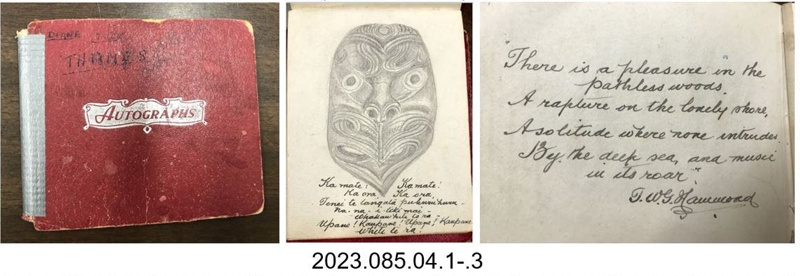 THAMES
AUTOGRAPHS
Ka mate! Ka mate!
Ka ora Ka ora
Tenei te tangata puhuruhuru -
Na - na - i - tiki mai -
whakawhiti te ra
Upane! Kaupane! Upane! Kaupane
White te ra!
"There is a pleasure in the
pathless woods.
A rapture on the lonely shore,
A solitude where none intrudes
By the deep sea, and music
in its roar".
T. W. G. Hammond
2023.085.04.1-.3